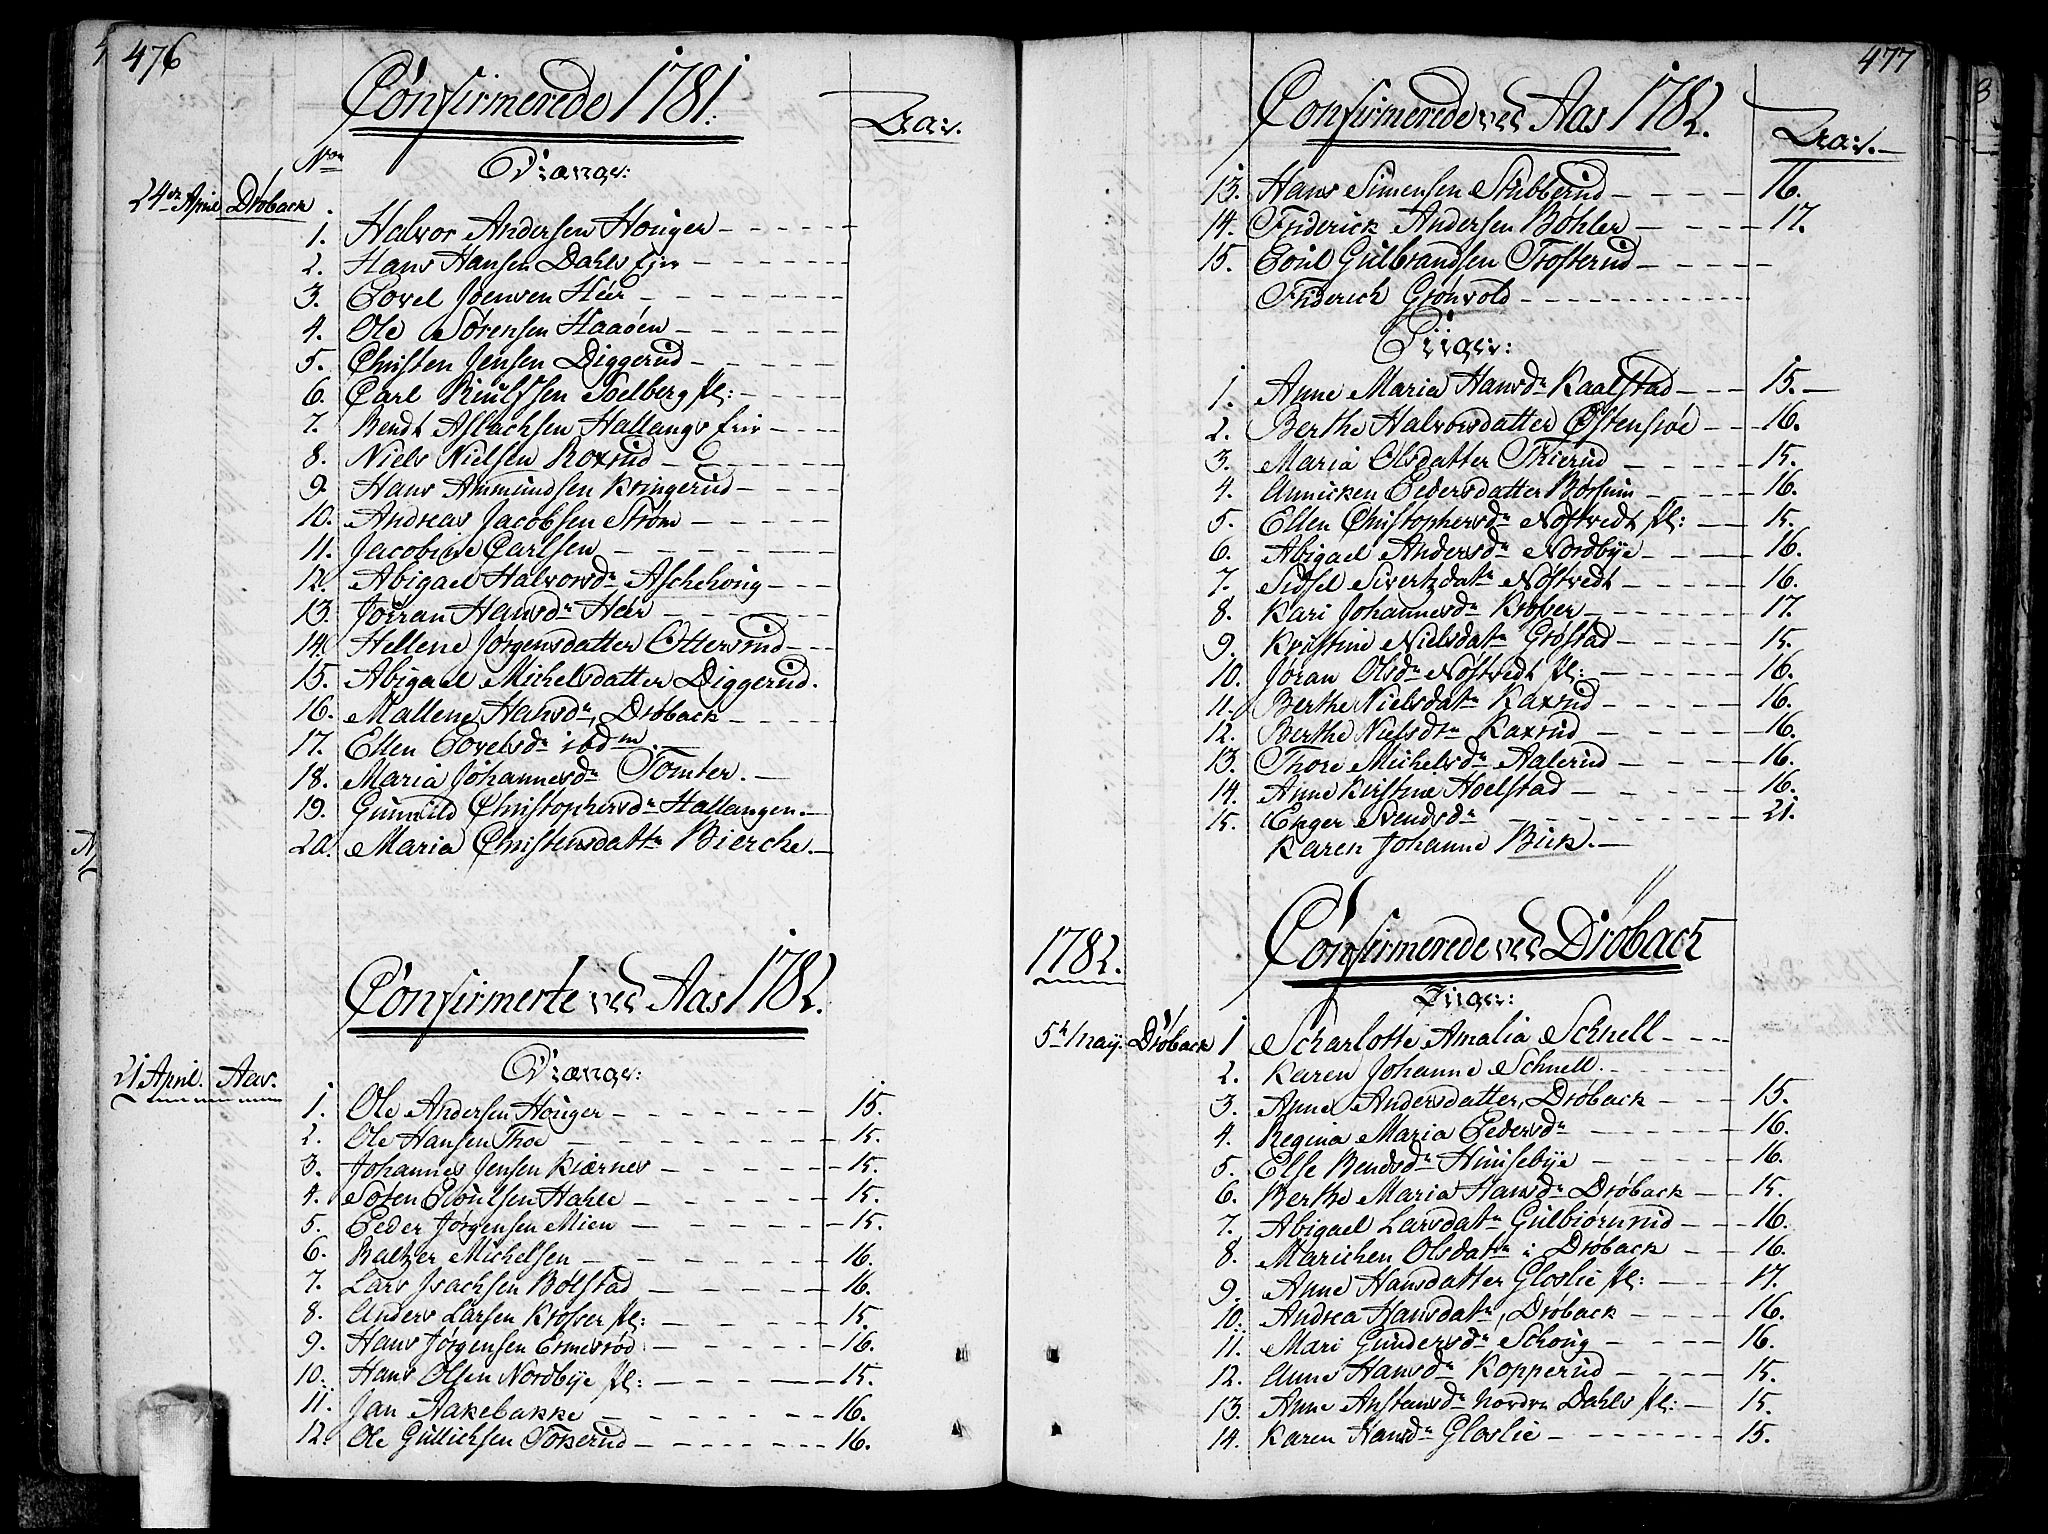 476
Confirmerede 1781.
Aar.
No.
Drænge:
24de April Drøback
1. Halvor Andersen Houger
2. Hans Hansen Dahls Eier
3. Povel Joensen Héér
4. Ole Sørensen Haaøen
5. Christen Jensen Diggerud
6. Carl Knulssen Solberg pl:
7. Bendt Aslachsen Hallangs Eier
8. Niels Nielsen Roxrud
9. Hans Ammundsen Kringerud
10. Andreas Jacobsen Strøm
11. Jacobine Carlsen
12. Abigael Halvorsdr Aschehoug
13. Jørran Hansdr Héér
14. Hellene Jørgensdatter Ottersrud
15. Abigael Michelsdatter Diggerud.
16. Mallene Hansdr, Drøback
17. Ellen Povelsdr ibdm
18. Maria Johannesdr Tomter.
19. Gunnild Christophersdr Hallangen.
20. Maria Christensdattr Bierche.
Confirmerte ved Aas 1782.
21 April. Aas.
Drænge:
1. Ole Andersen Houger 15.
2. Ole Hansen Thoe 15.
3. Johannes Jensen Kiærnes 15.
4. Søfen Poulsen Holle 15.
5. Peder Jørgensen Mien 15.
6. Baltzer Michelsen 16.
7. Lars Isachsen Bølstad 16.
8. Anders Larsen Krosser pl: 15.
9. Hans Jørgensen Ermesrød 16.
10. Hans Olsen Nordbye pl: 15.
11. Jan Aakebakke 16.
12. Ole Gullichsen Tokerud 16.
477
Confirmerede ved Aas 1782.
Aar.
13. Hans Simensen Stubberud 16.
14. Friderick Andersen Bøhler 17.
15. Poul Gulbrandsen Trosterud
Friderich Grønvold
Piiger:
1. Anne Maria Hansdr Kaalstad 15.
2. Berthe Halvorsdatter Østensiøe 16.
3. Maria Olsdatter Thierud 15.
4. Annicken Pedersdatter Børsum 16.
5. Ellen Christophersdr Nøstvedt pl: 15.
6. Abigael Andersdr Nordbye 16.
7. Sidsel Sivertzdatr Nøstvedt 16.
8. Kari Johannesdr Krober 17.
9. Kristine Nielsdatr Grøstad 15.
10. Jøran Olsdr Nøstvedt pl: 16.
11. Berthe Nielsdatr Kaxrud 16.
12. Berthe Nielsdtr Kaxrud 16.
13. Thore Michelsdr Aalerud 16.
14. Anne Kirstine Hoelstad 16.
15. Enger Svendsdr 21.
Karen Johanne Bick.
1782.
Confirmerede ved Drøbach
Piiger:
5te May. Drøback
1 Scharlotte Amalia Schnell
2. Karen Johanne Schnell.
3. Anne Andersdatter, Drøback 15.
4. Regina Maria Pedersdr 16.
5. Else Bendsdr Huusebye 16.
6. Berthe Maria Hansdr Drøback 15.
7. Abigael Larsdatr Gulbiørnrud 16.
8. Marichen Olsdatr i Drøback 16.
9. Anne Hansdatter Gloslie pl: 17.
10. Andrea Hansdatr, Drøback 16.
11. Mari Gundersdr Schoug 16.
12. Anne Hansdr Kopperud 15.
13. Anne Anstensdr Nordre Dahls pl: 15.
14. Karen Hansdr Gloslie 15.